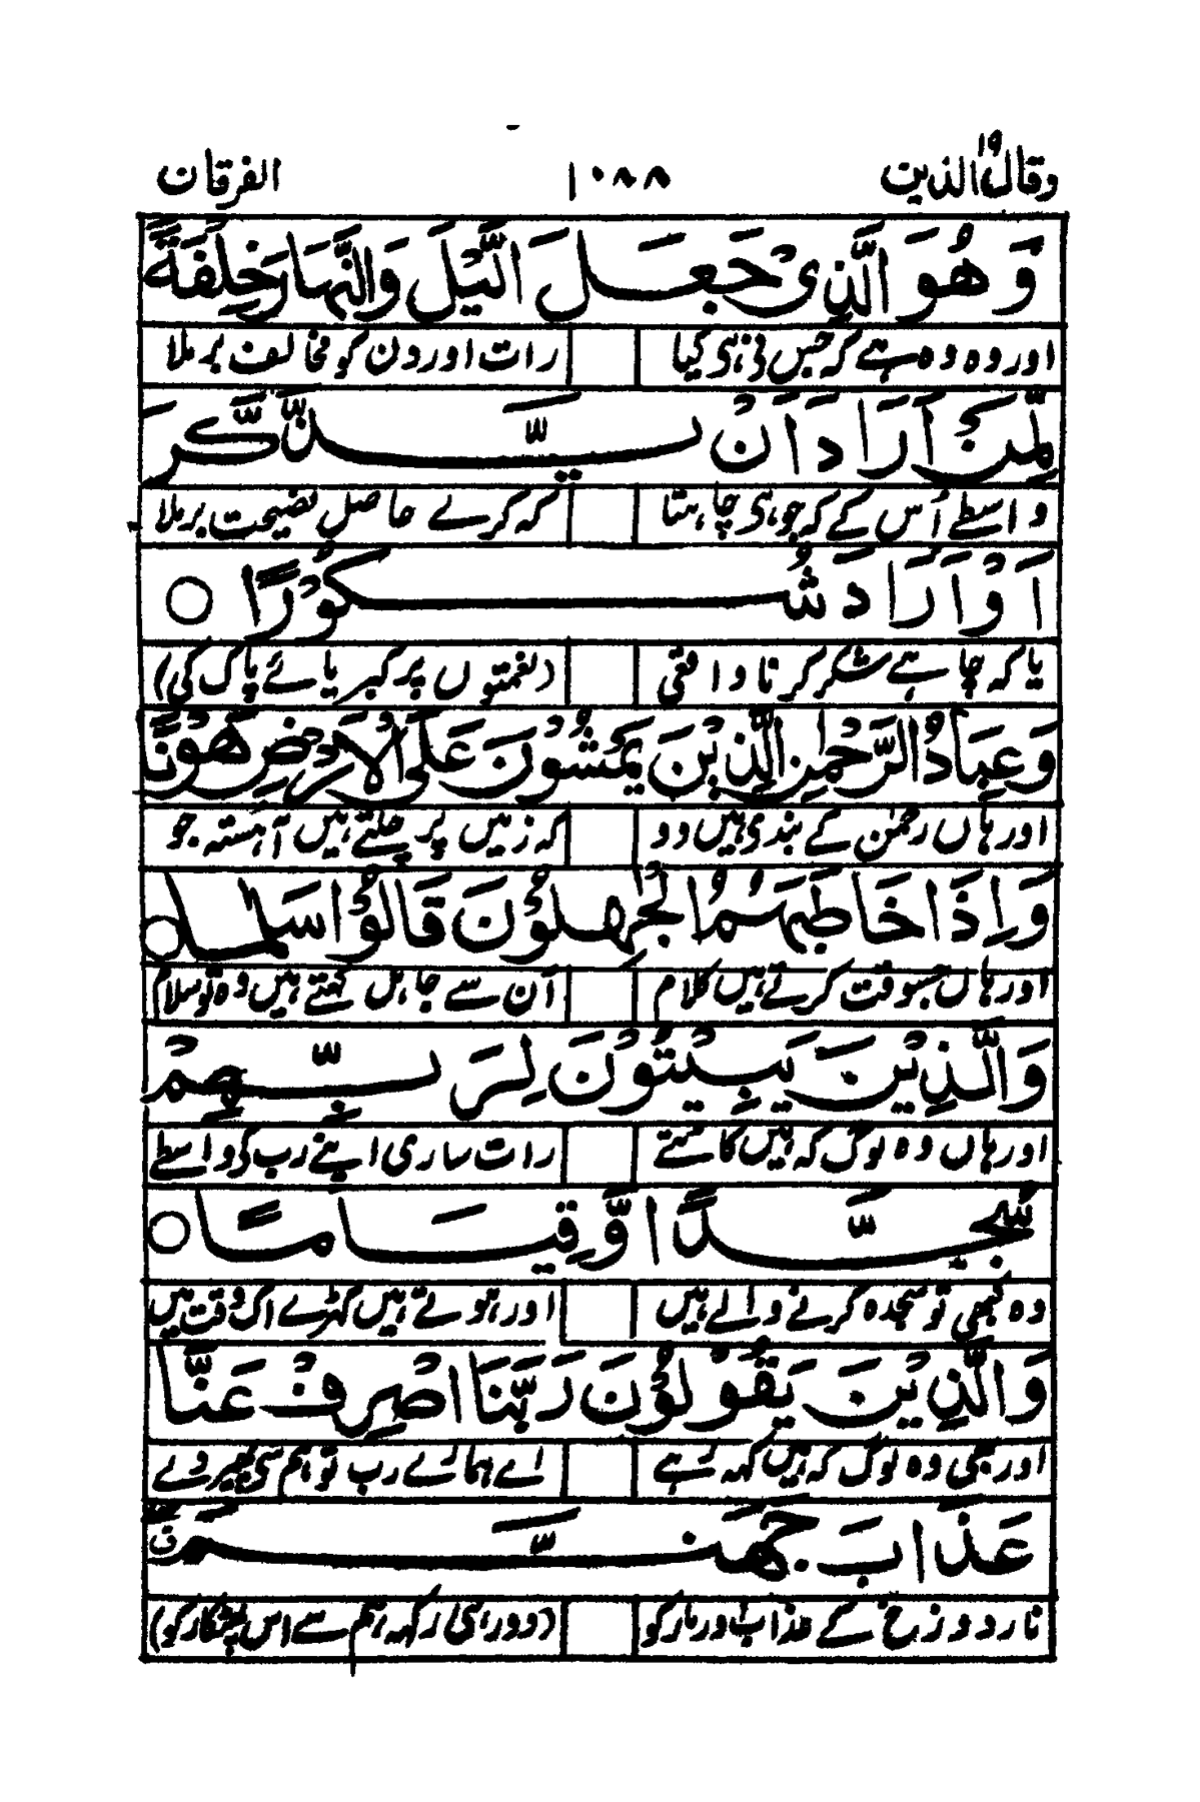 وقال الذین ١٩ ١٠٨٨ الفرقان
وَهُوَ الَّذِیْ جَعَلَ الَّیْلَ وَالنَّهَارَ خِلْفَةً
اور وہ وہ ہے کہ جس نے ہی کیا رات اور دن کو مخالف بر ملا
لِّمَنْ اَرَادَ اَنْ یَّذَّكَّرَ
واسطے اُس کے کہ جو ہی چاہتا کہ کرلے حاصل نصیحت بر ملا
اَوْ اَرَادَ شُكُوْرًا ○
یا کہ چاہے شکر کرنا واقعی (نعمتوں پر کبریائے پاک کی)
وَعِبَادُ الرَّحْمٰنِ الَّذِیْنَ یَمْشُوْنَ عَلَی الْاَرْضِ هَوْنًا
اور ہاں رحمٰن کے بندی ہیں وو کہ زمیں پر چلتے ہیں آہستہ جو
وَاِذَا خَاطَبَهُمُ الْجٰهِلُوْنَ قَالُوْا سَلٰمًا ○
اور ہاں جسوقت کرتے ہیں کلام اُن سے جاہل کہتے ہیں وہ تو سلام
وَالَّذِیْنَ یَبِیْتُوْنَ لِرَبِّهِمْ
اور ہاں وہ لوگ کہ ہیں کاٹتے رات ساری اپنے رب کے واسطے
سُجَّدًا وَّقِیَامًا ○
وہ کبھی تو سجدہ کرنے والے ہیں اور ہوتے ہیں کھڑے اک وقت میں
وَالَّذِیْنَ یَقُوْلُوْنَ رَبَّنَا اصْرِفْ عَنَّا
اور بھی وہ لوگ کہ ہیں کہہ رہے اے ہمارے رب تو ہم سے پھیر دے
عَذَابَ جَهَنَّمَ ق
نار دوزخ کے عذاب اور مار کو (دور ہی رکھ ہم سے اس پھٹکار کو)